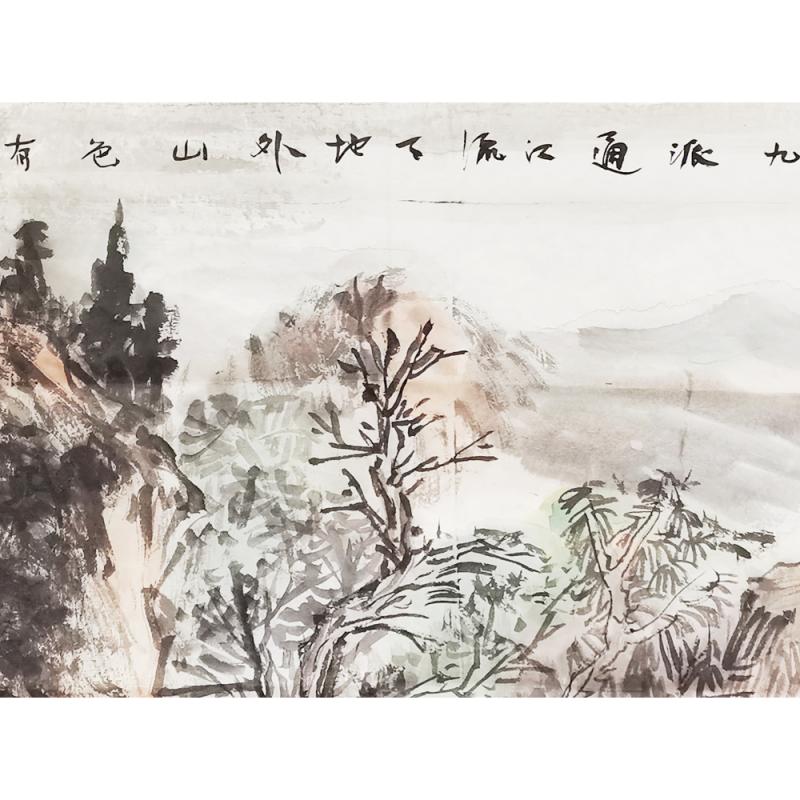 九派通江流天地外山色有